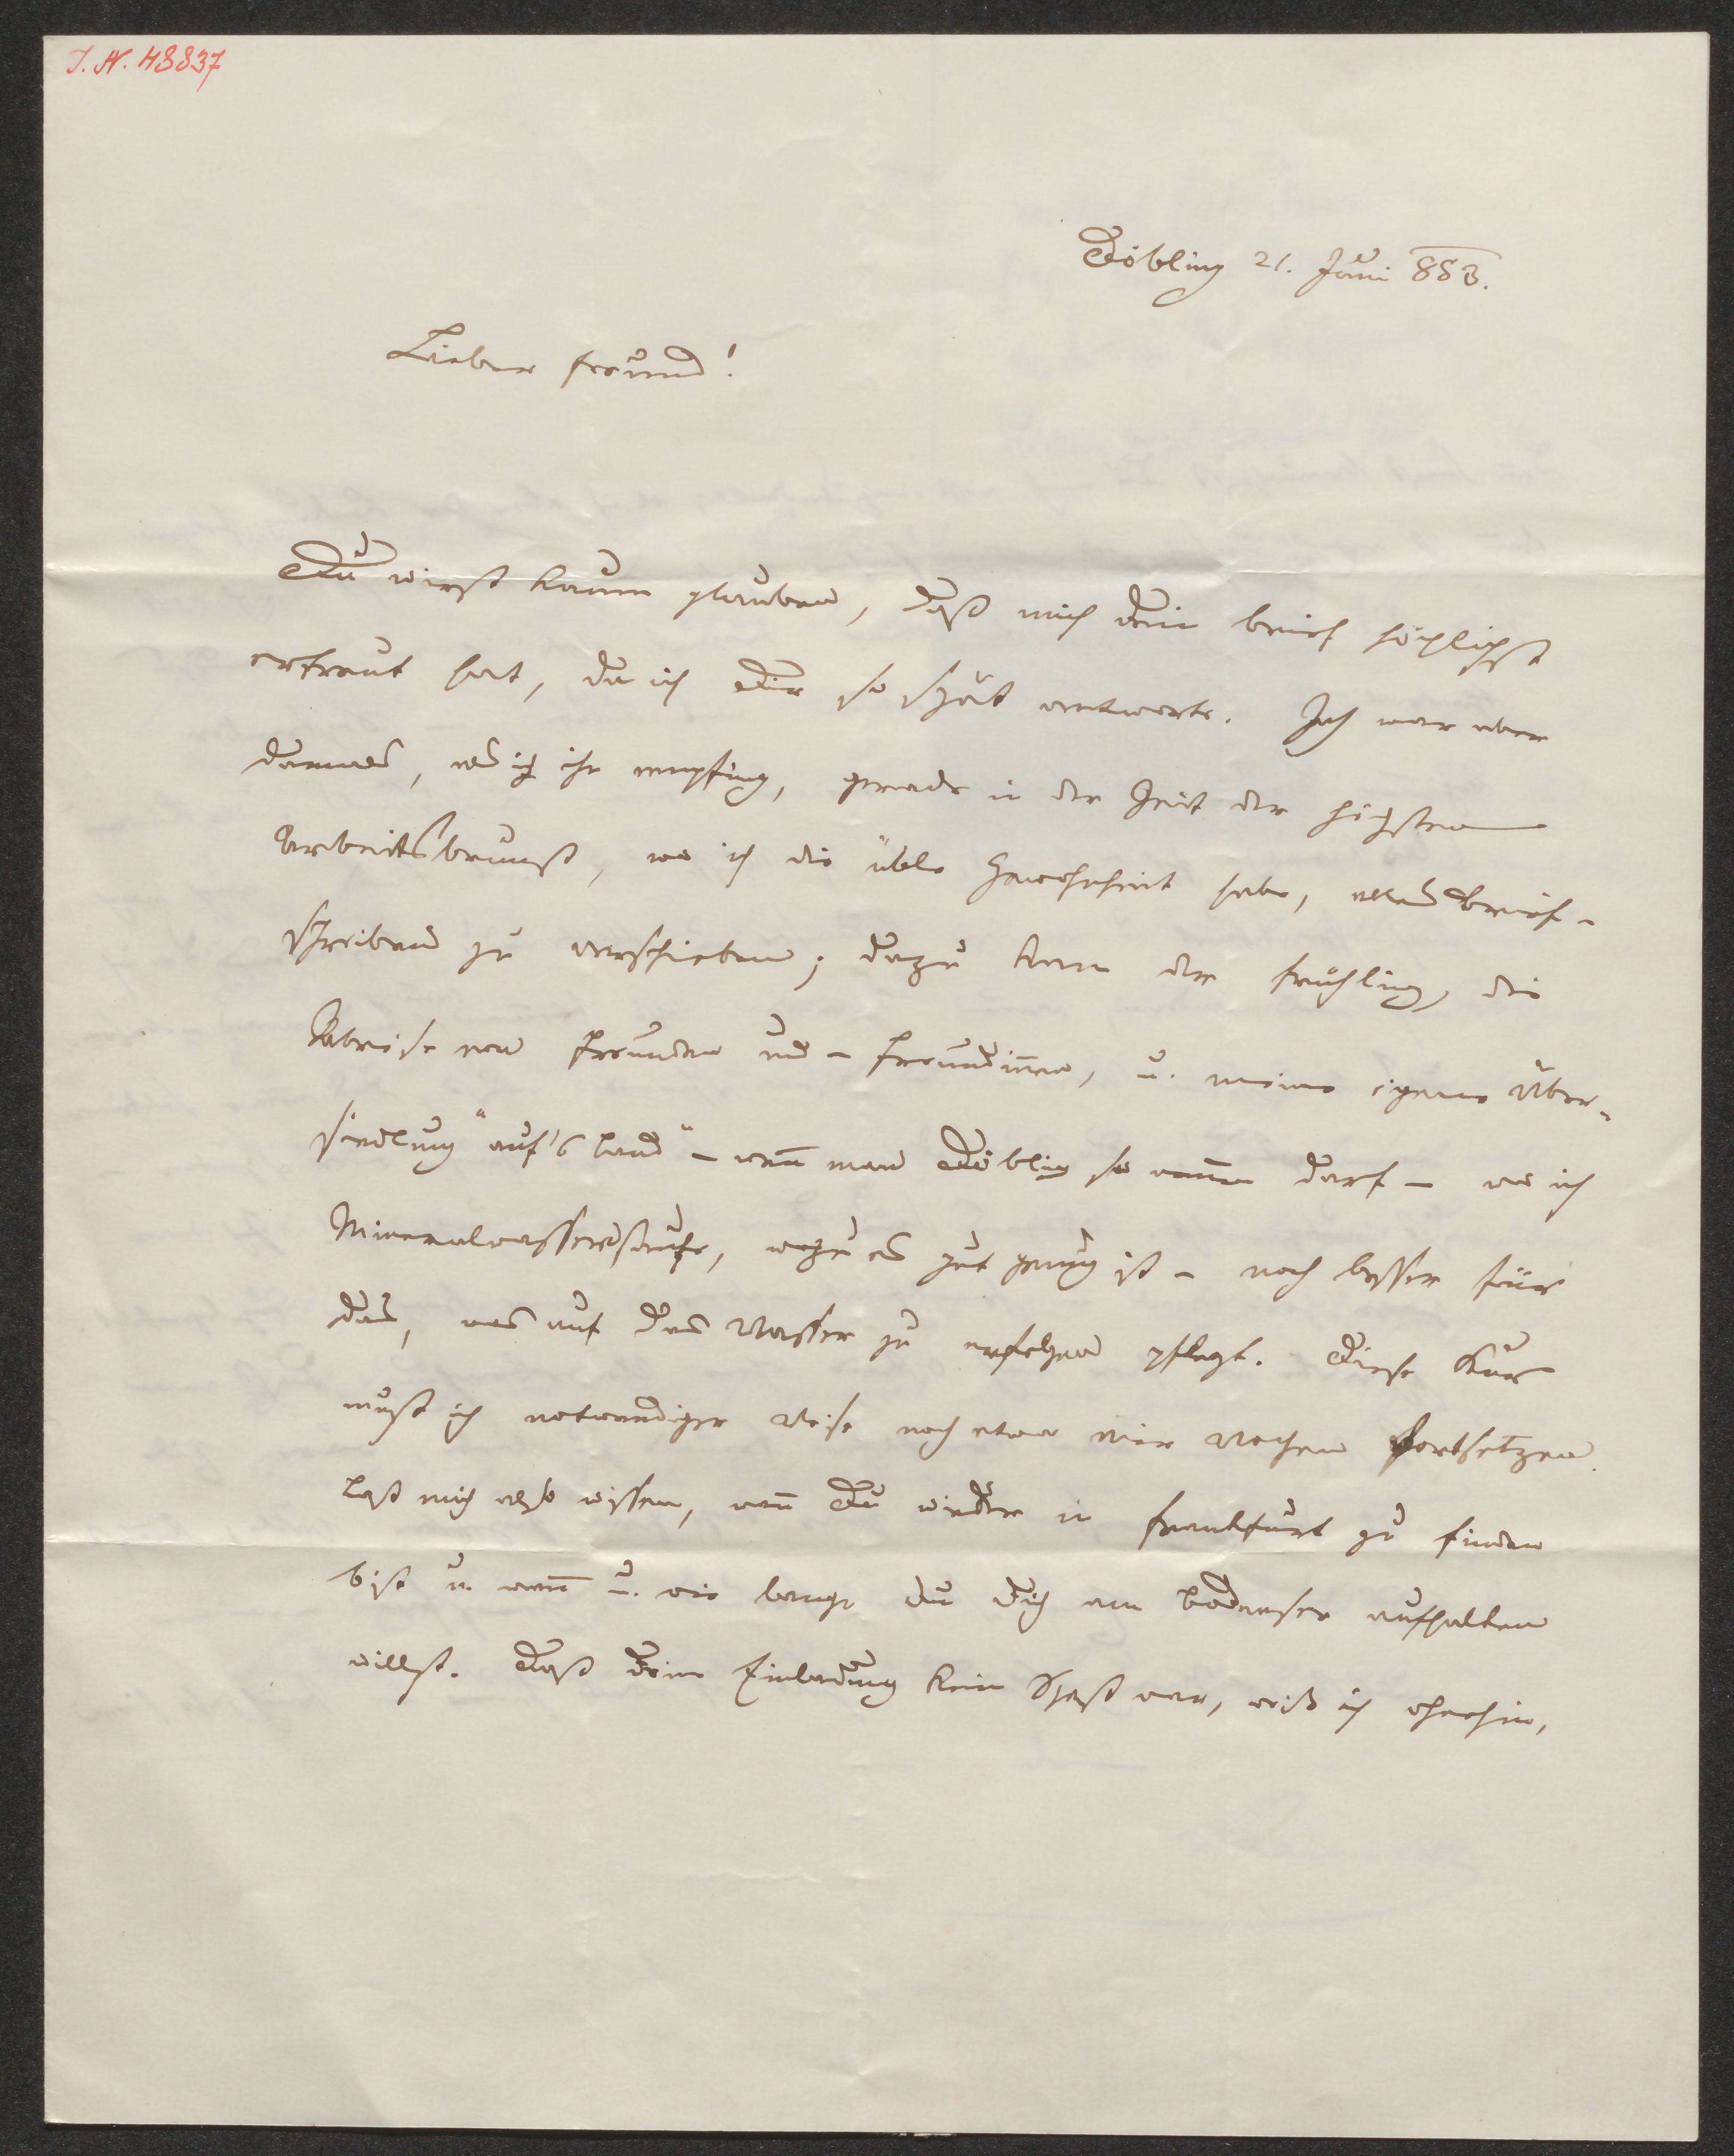 J. N. 48837
Döbling 21. Juni 853.
Lieber Freund!
Du wirst kaum glauben, daß mich dein Brief höchlichst
erfreut hat, da ich Dir so spät antworte. Ich war aber
damals, als ich ihn empfing, gerade in der Zeit der höchsten
Arbeitsbrunst, wo ich die üble Gewohnheit habe, alles Brief-
schreiben zu verschieben; dazu kam der Frühling, die
Abreise von Freunden und – Freundinnen, u. meine eigene Über-
siedlung "auf's Land" – wenn man Döbling so nennen darf – wo ich
Mineralwasser saufe, wozu es gut genug ist – noch besser für
das, was auf das Wasser zu erfolgen pflegt. Diese Kur
muß ich notwendiger Weise noch etwa vier Wochen fortsetzen.
Laß mich also wissen, wann Du wieder in Frankfurt zu finden
bist u. wann u. wie lange du dich am Bodensee aufhalten
willst. Daß deine Einladung kein Spaß war, weiß ich ohnehin,